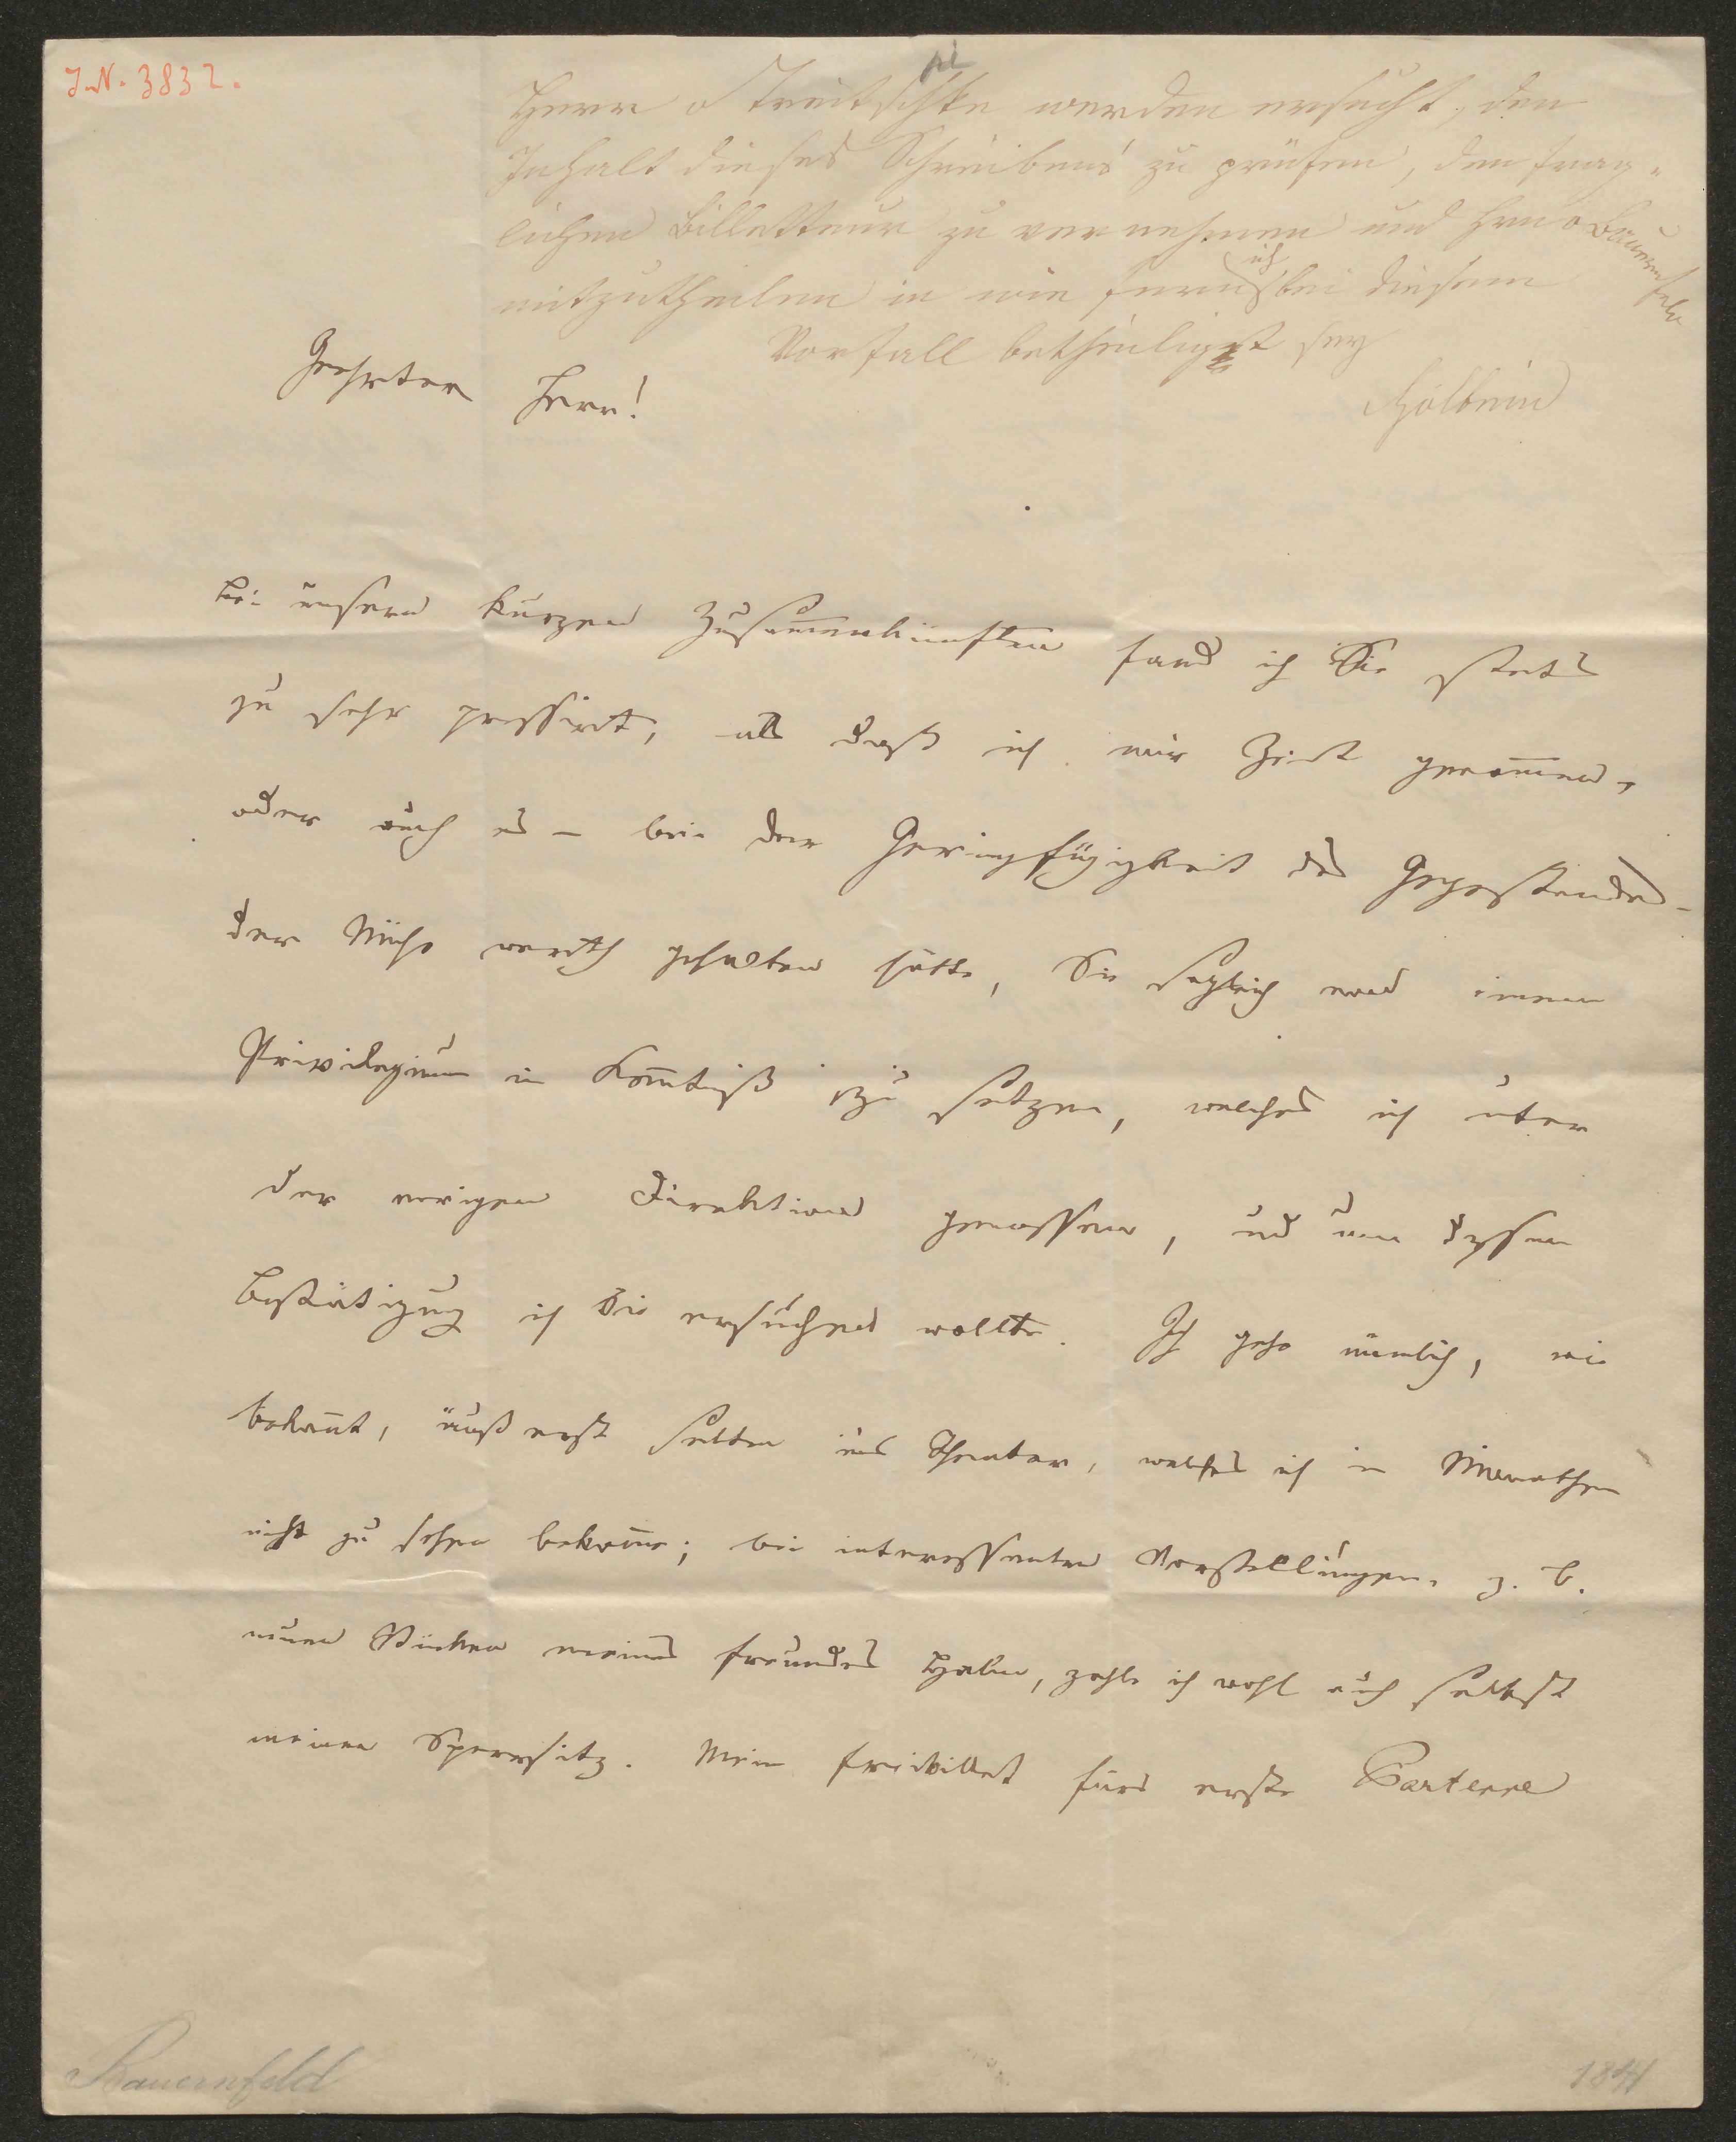 J.N. 3832.
Herr v Treitschke werden ersucht, den
Inhalt dieses Schreibens zu prüfen, den frag-
lichen Billetteur zu vernehmen und Hrn v Bauernfeld
mitzutheilen in wie fern ich bei diesem
Vorfall betheiligt sey
Holbein
Geehrter Herr!
Bei unsern kurzen Zusammenkünften fand ich Sie stets
zu sehr pressirt, als daß ich mir Zeit genom̄en,
oder auch es – bei der Geringfügigkeit des Gegenstandes –
der Mühe werth gehalten hätte, Sie sogleich von einem
Privilegium in Kenntniß zu setzen, welches ich unter
der vorigen Direktion genossen, und um dessen
Bestätigung ich Sie ersuchen wollte. Ich gehe nämlich, wie
bekan̄t, äußerst selten ins Theater, welches ich in Monathen
nicht zu sehen bekom̄e; bei interessanten Vorstellungen, z. B.
neuen Stücken meines Freundes Halm, zahle ich wohl auch selbst
meinen Sperrsitz. Mein Freibillet fürs erste Parterre
Bauernfeld
1841